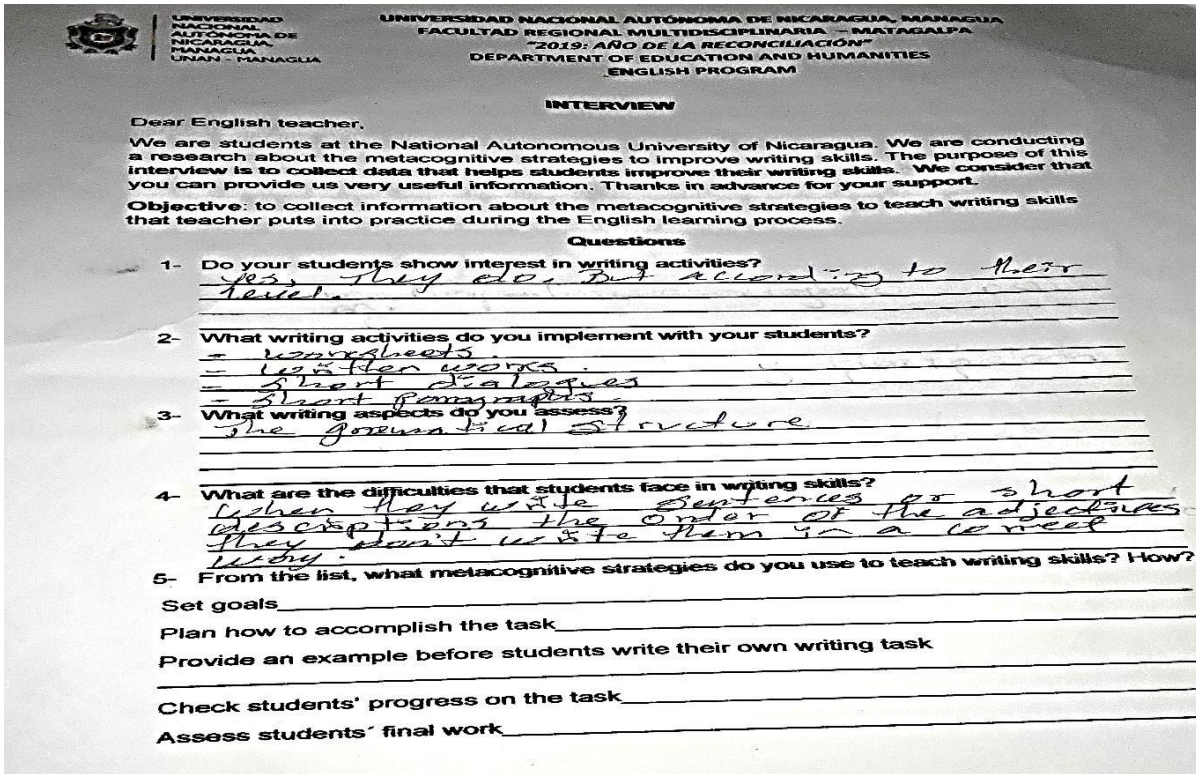 UNIVERSIDAD
NACIONAL
AUTÓNOMA DE
NICARAGUA,
MANAGUA
UNAN - MANAGUA
UNIVERSIDAD NACIONAL AUTÓNOMA DE NICARAGUA, MANAGUA
FACULTAD REGIONAL MULTIDISCIPLINARIA - MATAGALPA
"2019: AÑO DE LA RECONCILIACIÓN"
DEPARTMENT OF EDUCATION AND HUMANITIES
ENGLISH PROGRAM
INTERVIEW
Dear English teacher,
We are students at the National Autonomous University of Nicaragua. We are conducting
a research about the metacognitive strategies to improve writing skills. The purpose of this
interview is to collect data that helps students improve their writing skills. We consider that
you can provide us very useful information. Thanks in advance for your support.
Objective: to collect information about the metacognitive strategies to teach writing skills
that teacher puts into practice during the English learning process.
Questions
1- Do your students show interest in writing activities?
Yes, They do. But according to their
level.
2- What writing activities do you implement with your students?
- worksheets.
- written works.
- Short dialogues
- Short paragraphs.
3- What writing aspects do you assess?
The gramatical structure
4- What are the difficulties that students face in writing skills?
When they write sentences or short
descriptions the order of the adjectives
they don't write them in a correct
way.
5- From the list, what metacognitive strategies do you use to teach writing skills? How?
Set goals
Plan how to accomplish the task
Provide an example before students write their own writing task
Check students' progress on the task
Assess students´ final work